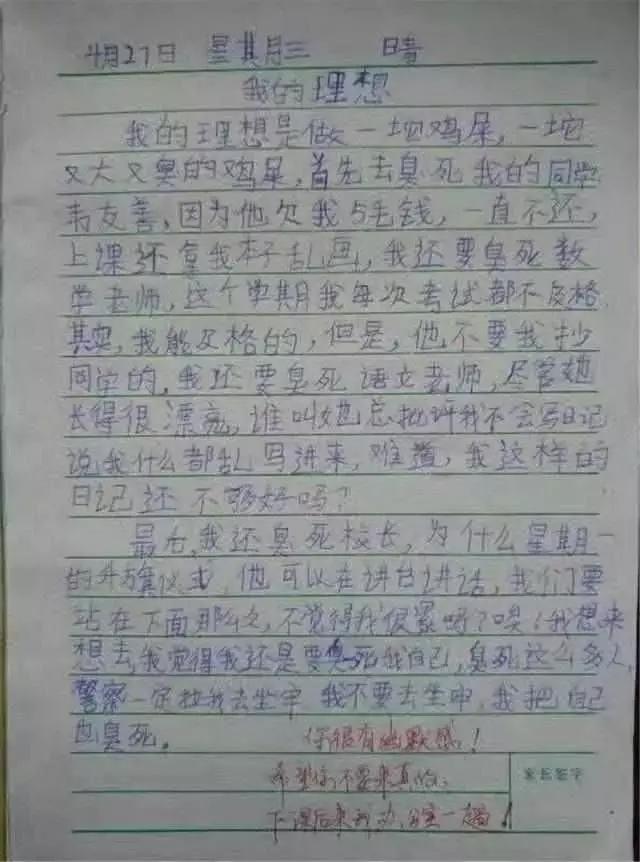 4月27日 星其月三 晴
我的理想
我的理想是做一坨鸡屎,一坨
又大又臭的鸡屎,首先去臭死我的同学
韦友善,因为他欠我5毛钱,一直不还,
上课还拿我本子乱画,我还要臭死数
学老师,这个学期我每次考试都不及格
其实,我能及格的,但是,他不要我抄
同学的,我还要臭死语文老师,尽管她
长得很漂亮,谁叫她总批评我不会写日记
说我什么都乱写进来,难道,我这样的
日记还不够好吗?
最后,我还臭死校长,为什么星期一
的升旗仪式,他可以在讲台讲话,我们要
站在下面那么久,不觉得我很累吗?唉!我想来
想去,我觉得我还是要臭死我自己,臭死这么多人,
警察一定拉我去坐牢 我不要去坐牢,我把自己
也臭死。
你很有幽默感!
希望你不要来真的,
下课后来我办公室一趟!
家长签字